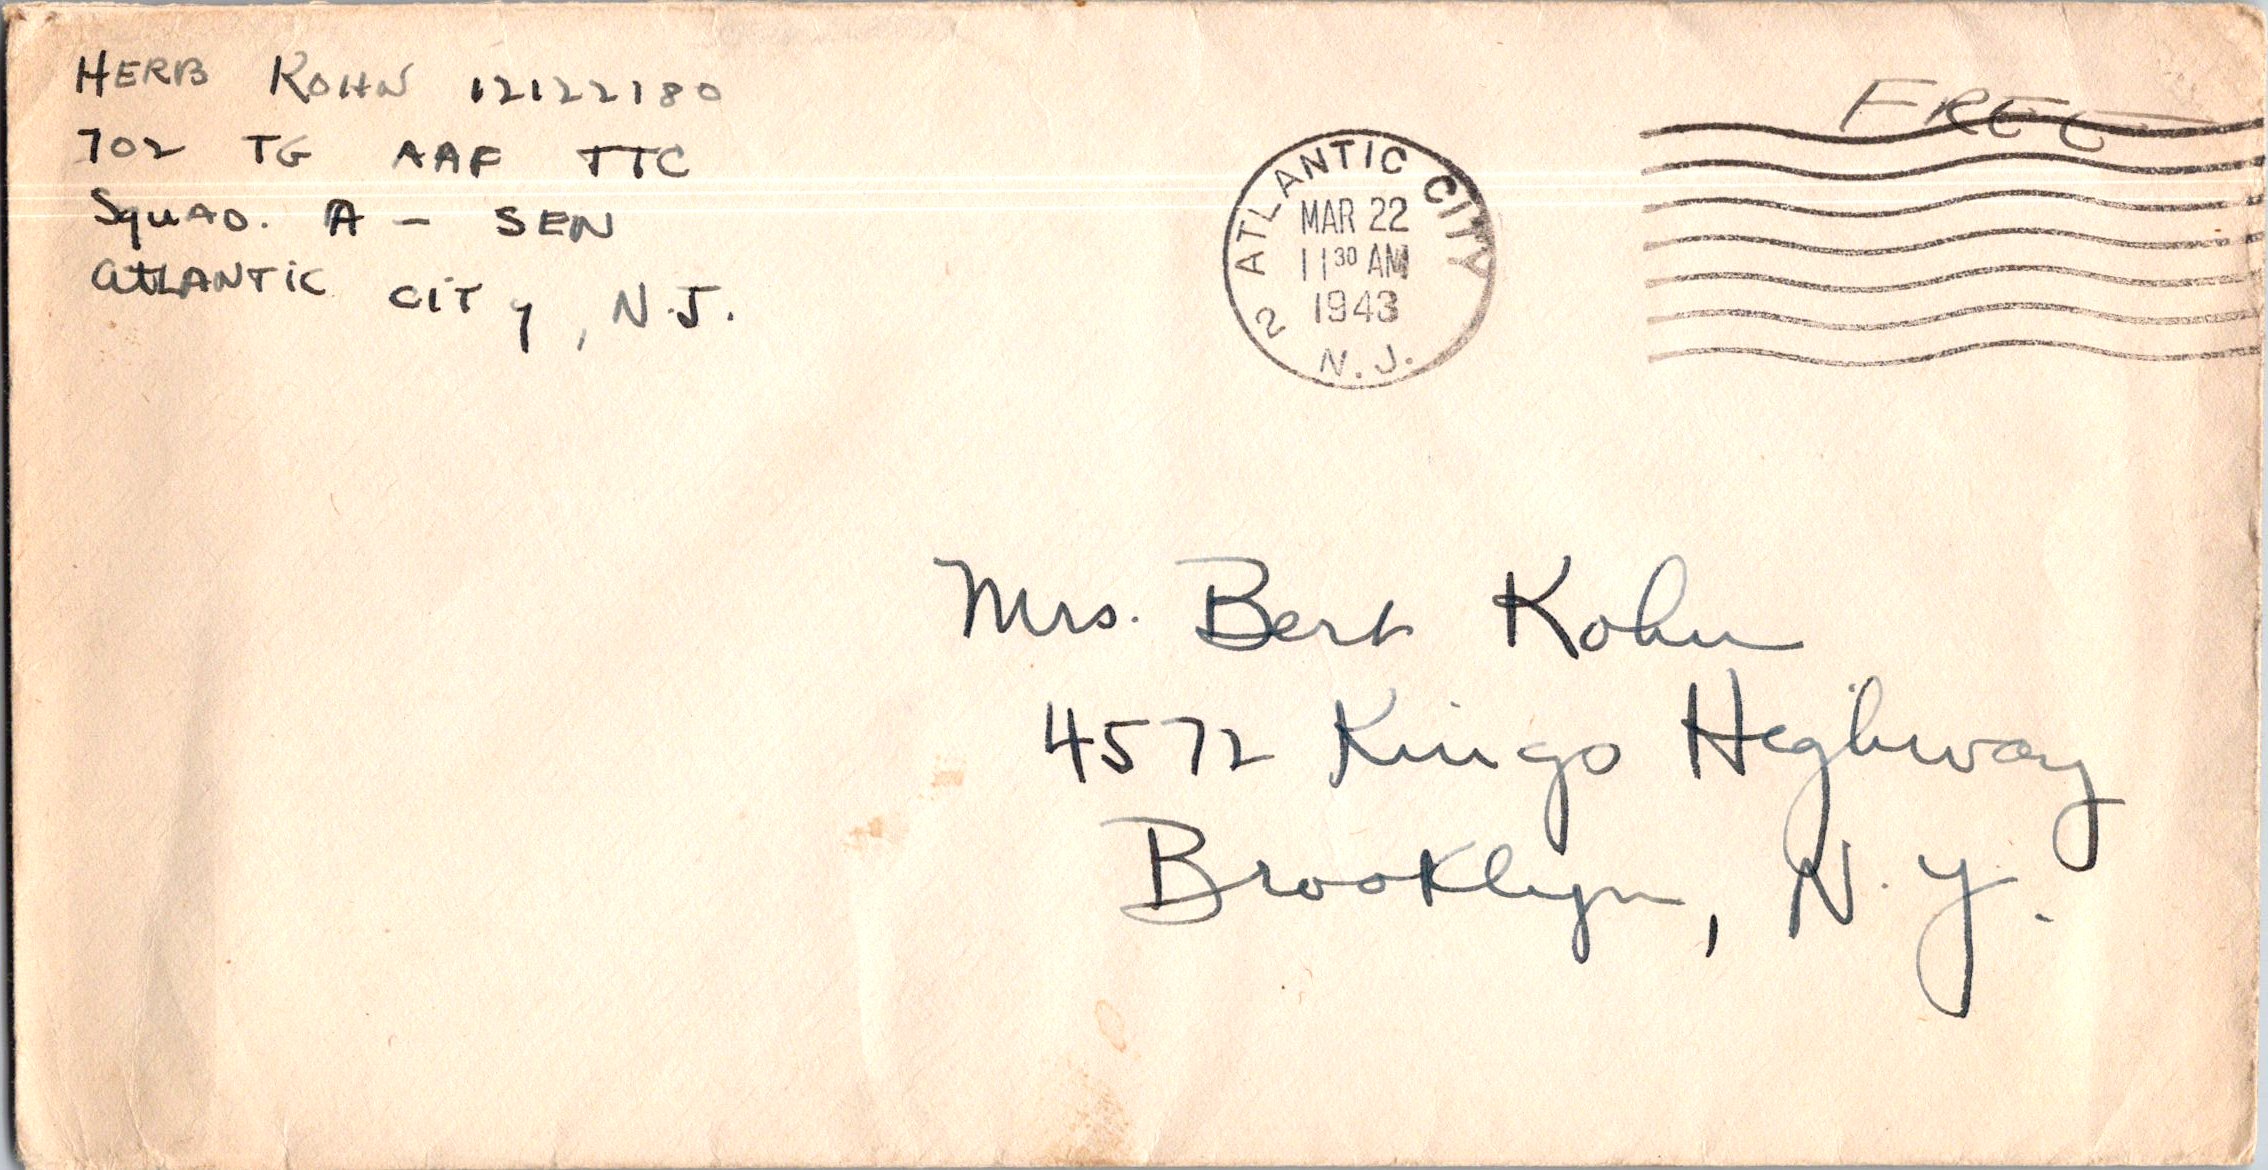 HERB KOHN 12122180
702 TG AAF TTC
Squad. A - SEN
Atlantic City, N.J.
2 ATLANTIC CITY N.J.
MAR 22
11 30 AM
1943
FREE
Mrs. Bert Kohn
4572 Kings Highway
Brooklyn, N.Y.